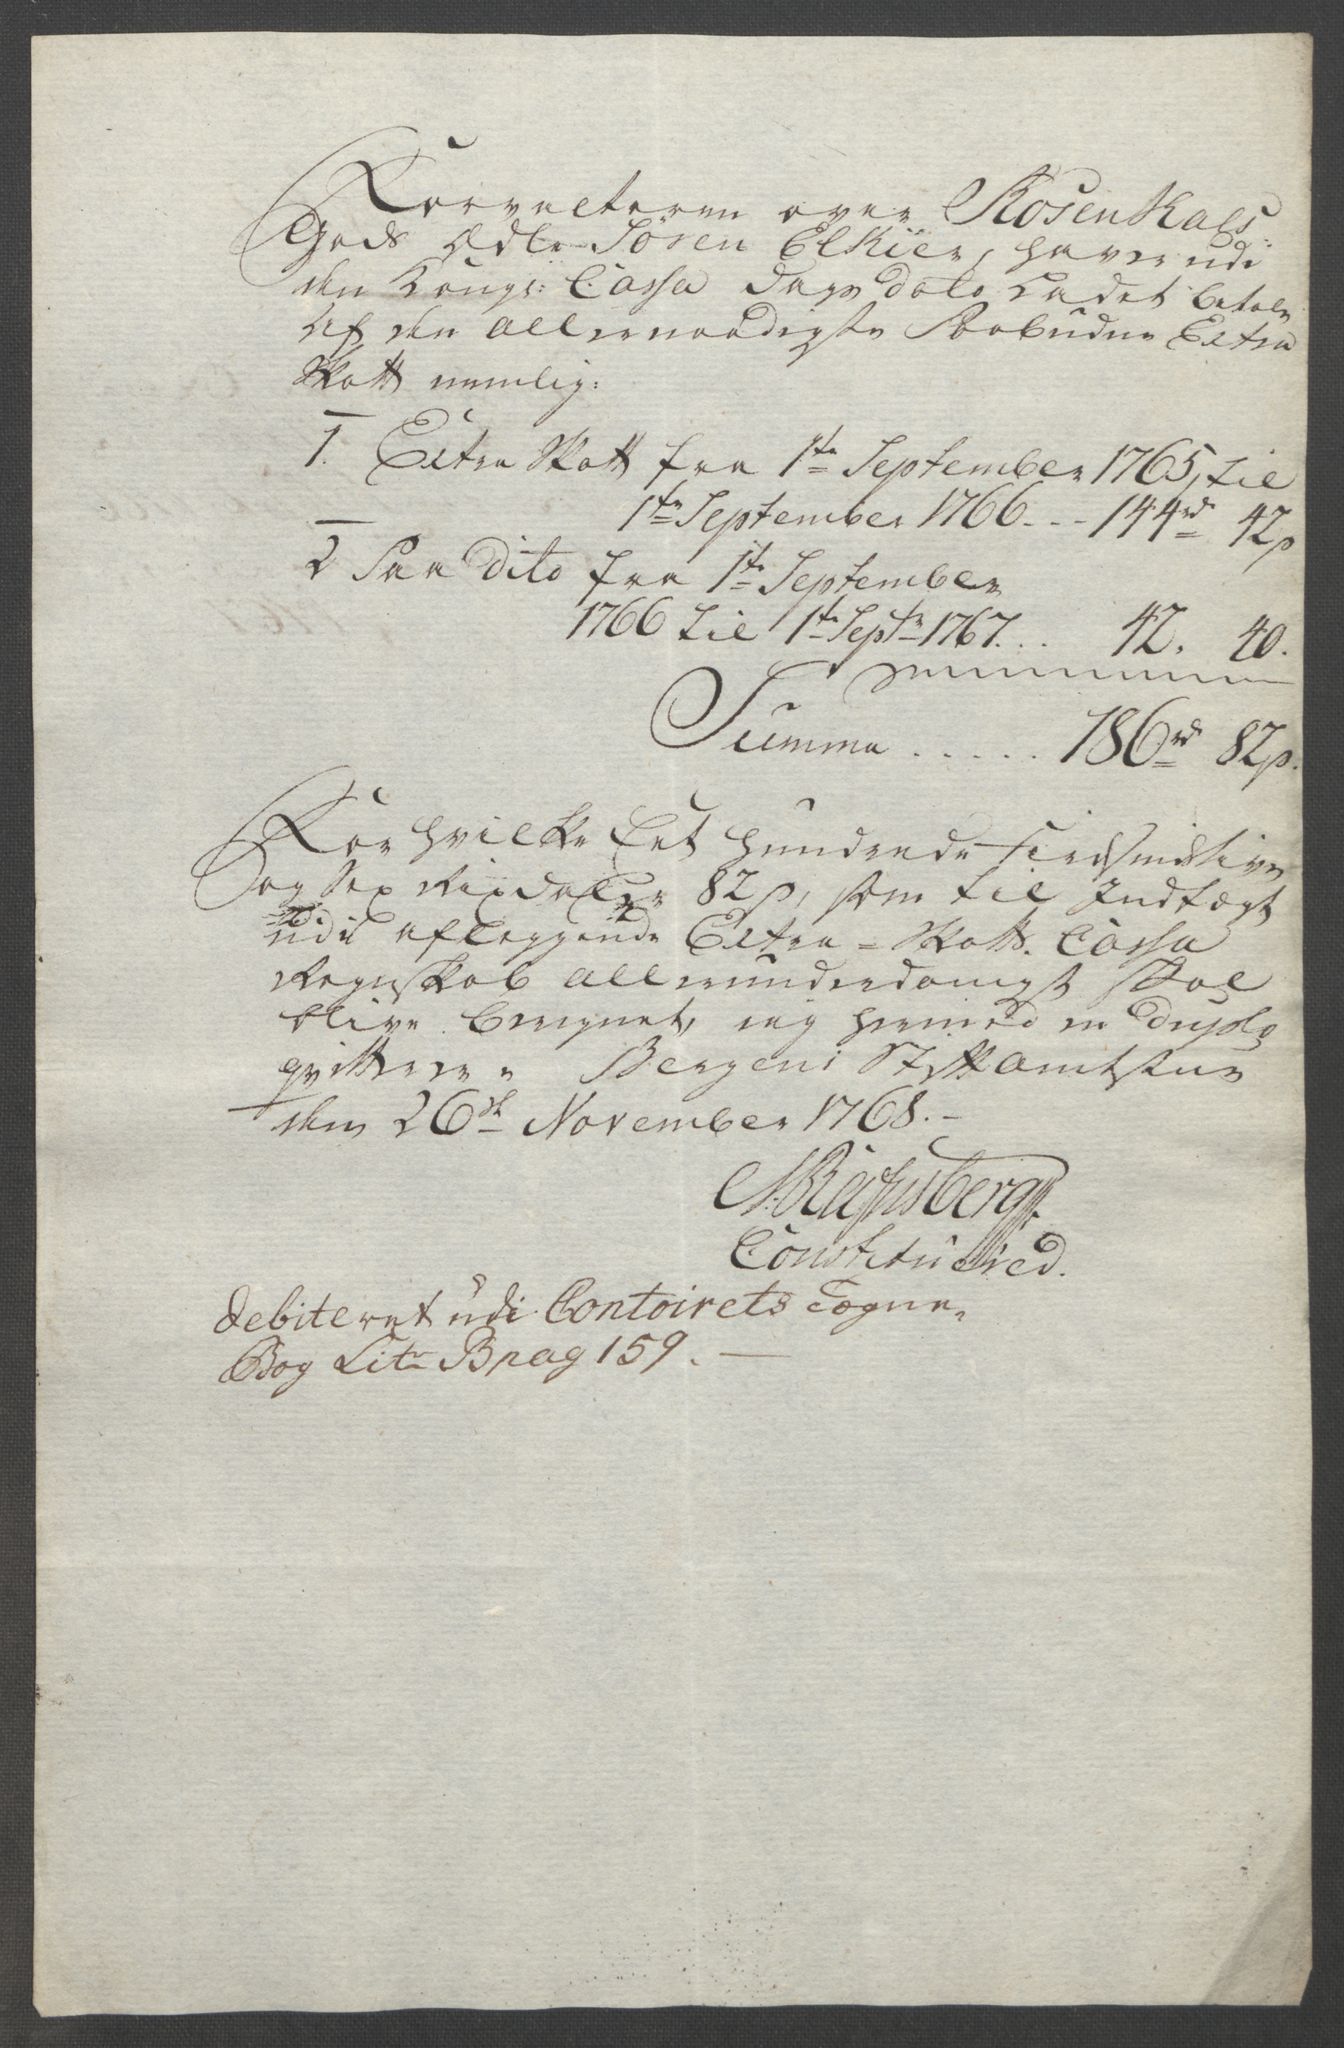 Forvalteren over RosenKals:
Gods Ædle Sören Elkier, haver udi
den Kongl: Cassa dags dato ladet betale
af den allernaadigste Paabudne Extra
Skatt nemlig:
1. Extra Skatt fra 1te September 1765, til
1te September 1766 - - - 144rd 42s
2 Paa Dito fra 1te September
1766 til 1te Septr 1767 . . . 42. 40.
Summa . . . . . 186rd 82s.
For hvilke Eet hundrede fiirdsindstive
og Sex Rixdaler 82s, som til Indtægt
udi aflæggende Extra-Skatts Cassa
Regnskab allerunderdanigst skal
blive beregnet, ieg hermed in Duplo
qvitterer. Bergens Stiftamtstue
den 26de November 1768. -
Constituered.
Debiteret udi Contoirets Tegne-
Bog Litr B pag 159. -